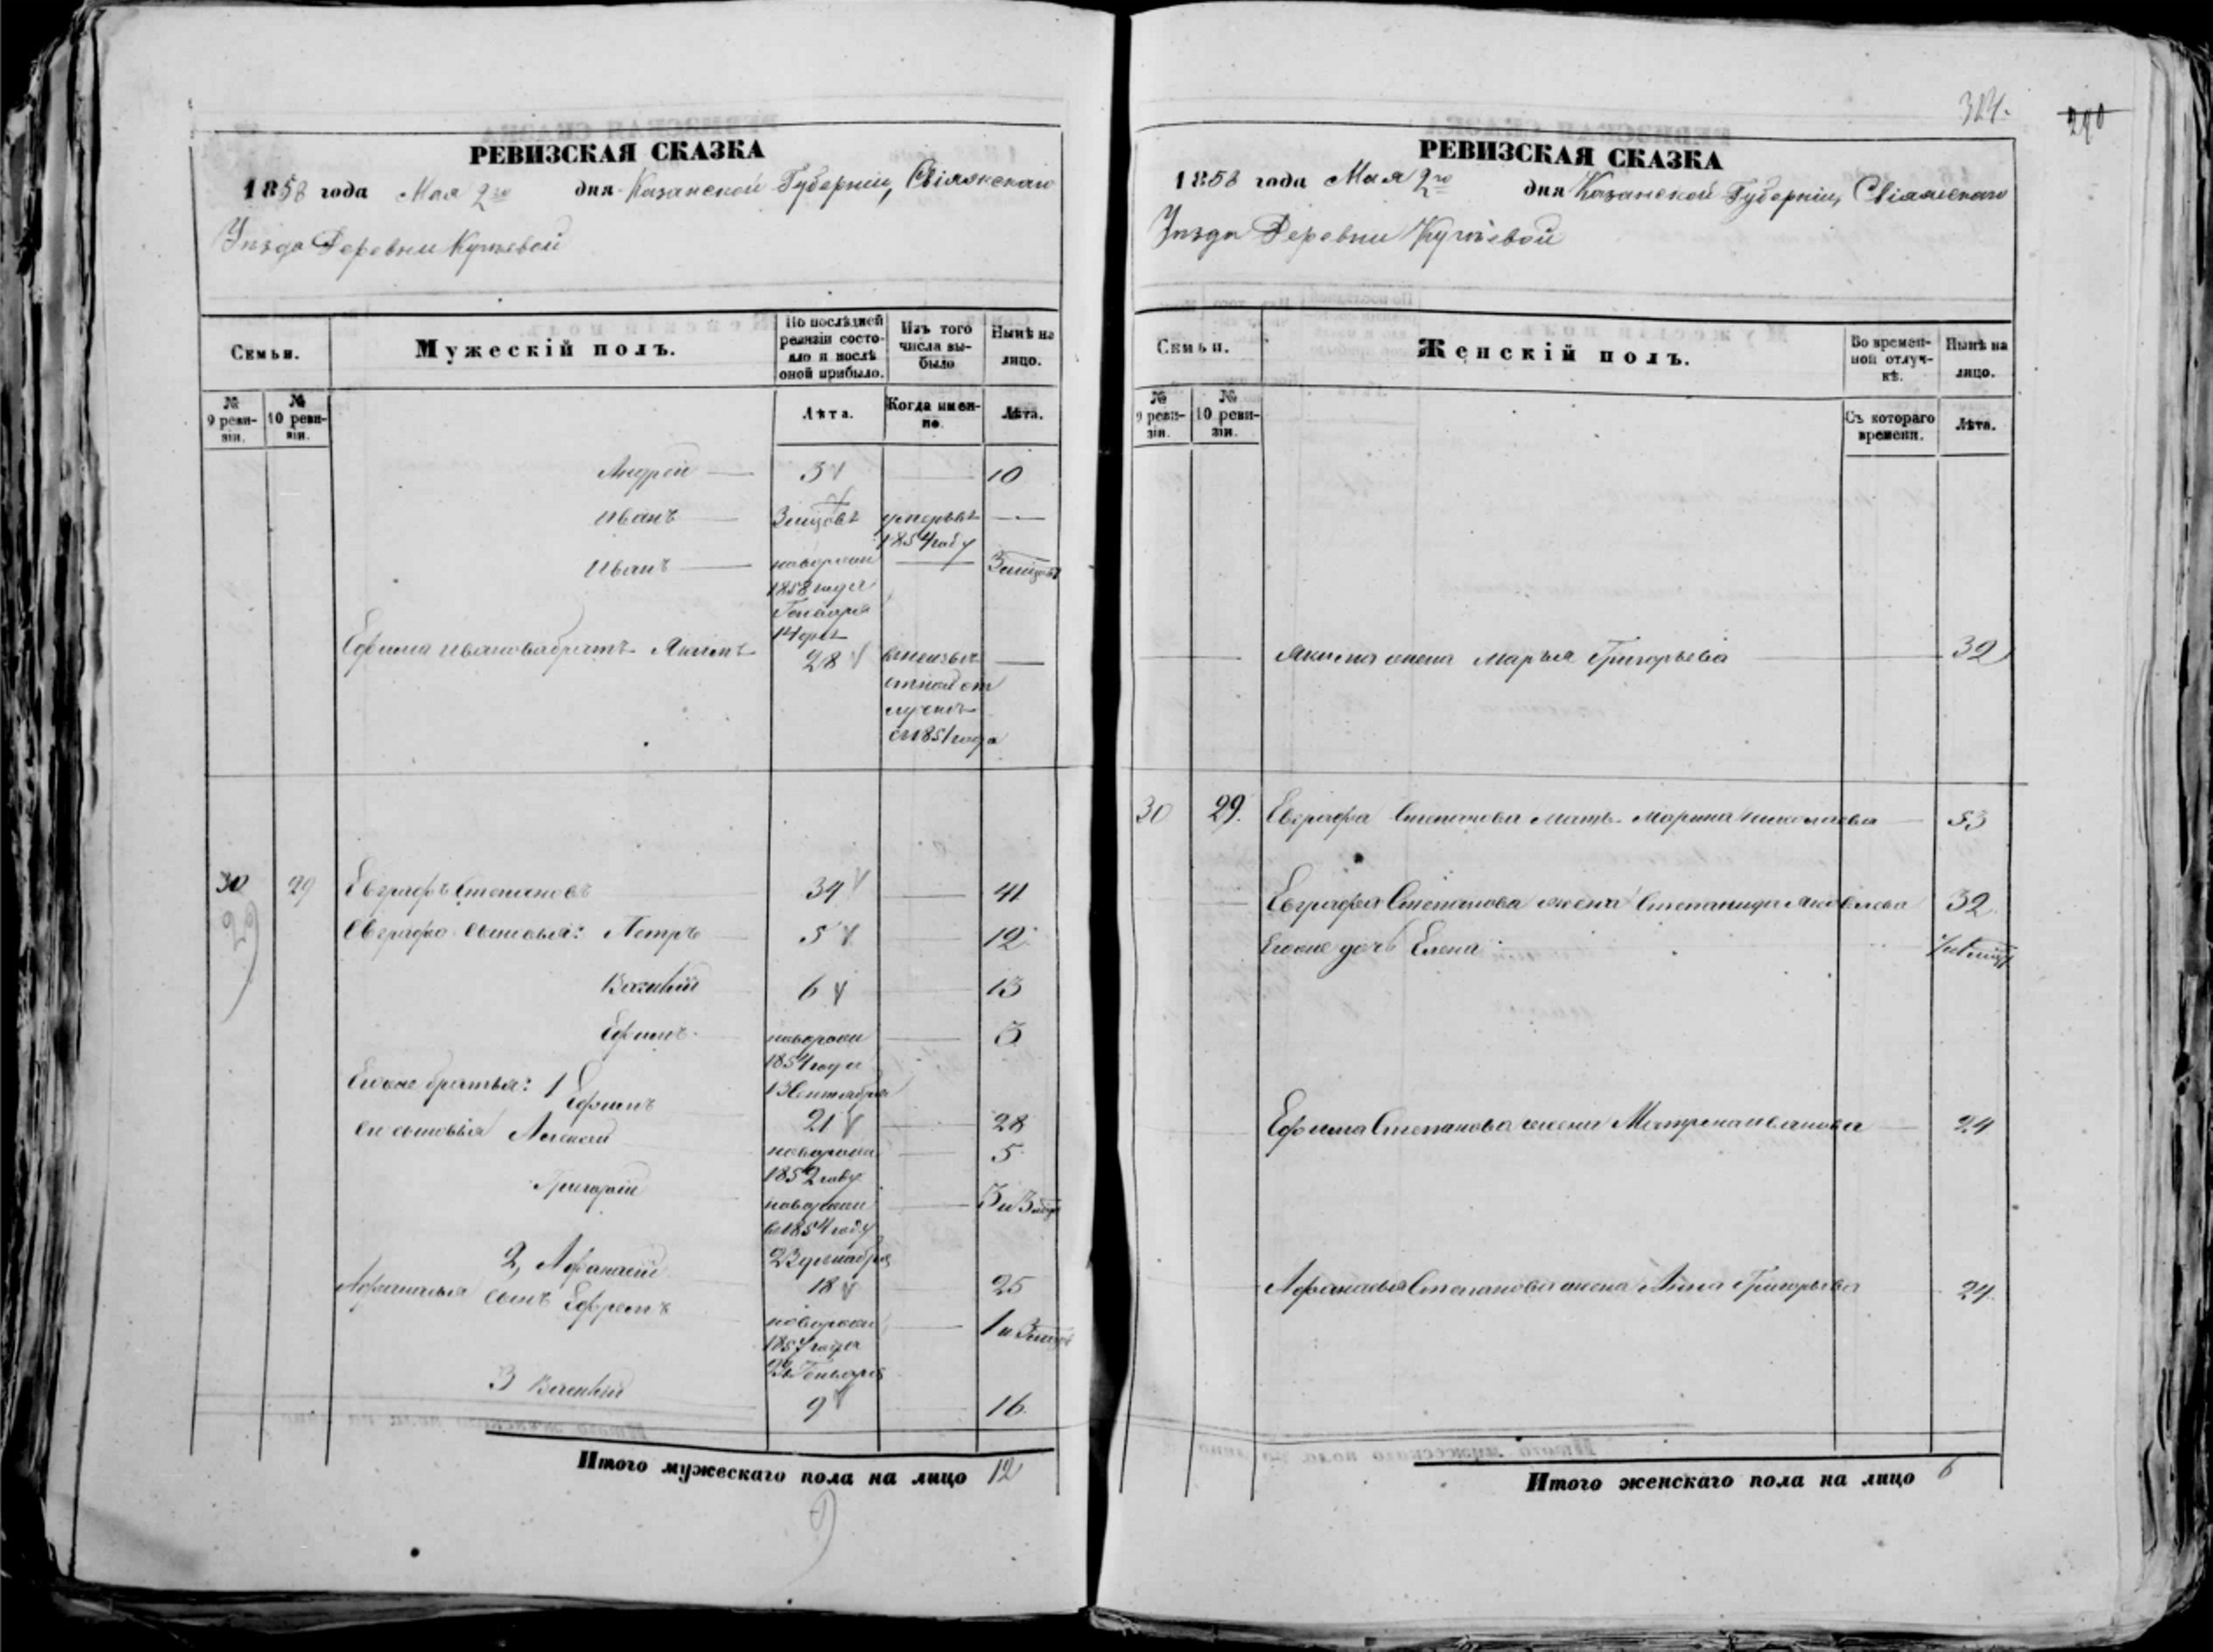 324.
280
РЕВИЗСКАЯ СКАЗКА
1858 года Мая 2го дня Казанской Губерніи, Свіяжскаго
Уезда Деревни
Семьи.
Мужескій полъ.
По послѣдней ревизіи состояло и послѣ оной прибыло.
Изъ того числа выбыло
Нынѣ на лицо.
№ 9 ревизіи.
№ 10 ревизіи.
Лѣта.
Когда именно.
Лѣта.
Андрей 3 10
Иванъ 3 умеръ въ
1854 году
Иванъ новорожн
1858 года
Генваря
14 дня
Ефима Иванова братъ Якимъ 28
съ 1851 года
30 29 Евграфъ Степановъ 34 41
29
Евграфа сыновья: Петръ 5 12
Василій 6 13
Ефимъ новорожн 3
1854 года
13 Сентября
Егоже братья: 1 Ефимъ
21 28
Ево сыновья Алексей новорожн 5
1852 году
Григорій новорожн 3 и 3
въ 1854 году
23 декабря
2, Афанасій 18 25
Афанасья сынъ Ефремъ
новорожн 1 и 3
1857 года
Генваря
3 Василій 9 16
Итого мужескаго пола на лицо 12
РЕВИЗСКАЯ СКАЗКА
1858 года Мая 2го дня Казанской Губерніи, Свіяжскаго
Уезда Деревни
Семьи.
Женскій полъ.
Во временной отлучкѣ.
Нынѣ на лицо.
№ 9 ревизіи.
№ 10 ревизіи.
Съ котораго времени.
Лѣта.
Якима жена Марья Григорьева 32
30 29. Евграфа Степанова мать Марина Николаева 53
Евграфа Степанова жена Степанида Яковлева 32
Егоже дочь Елена
Ефима Степанова жена Матрена Иванова 24
Афанасья Степанова жена Анна Григорьева 24
Итого женскаго пола на лицо 6